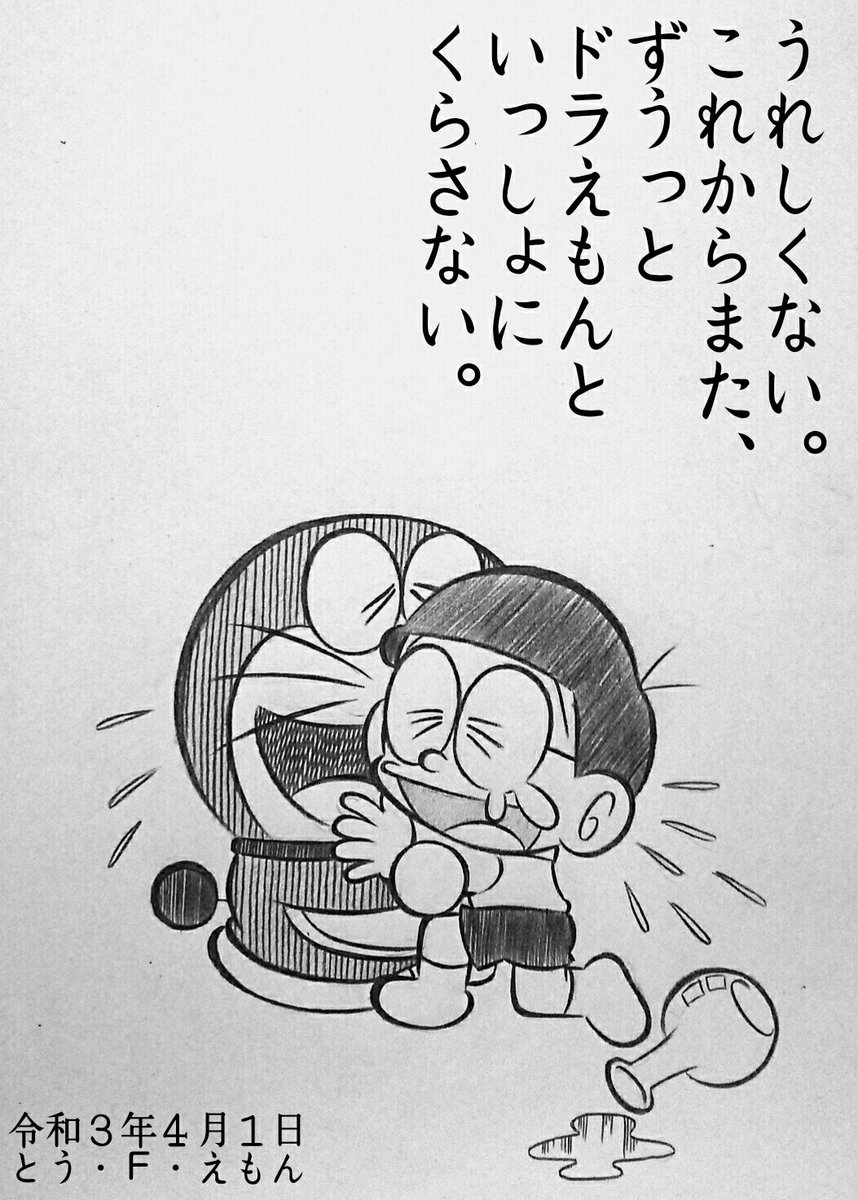 うれしくない。
これからまた、
ずうっと
ドラえもんと
いっしょに
くらさない。
令和３年４月１日
とう・Ｆ・えもん